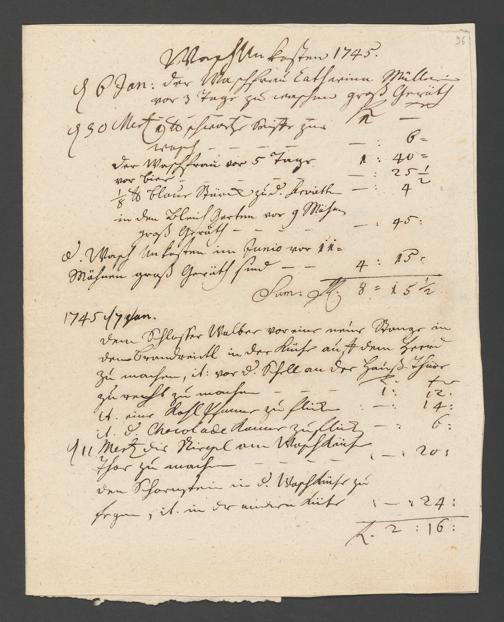 96
Wasch Unkosten 1745.
d 6 Jan: der Waschfrau Catharina Müllerin
vor 3 Tage zu waschen groß Geräth
d 30 Mertz 1 lb schwartze Seiffe zum
wasch — — — — : 6 =
der Waschfrau vor 5 Tage 1 : 40 =
vor bier — — — : 25 1/2
1/8 lb blaue Stärck zu d. Geräth — : 4
in den Bleich Garten vor 9 Mahnen
groß Geräth — — — : 45 :
d. Wasch Unkosten im Junio vor 11 =
Mahnen groß Geräth sind — — 4 : 15 :
Sum: fl. 8 = 15 1/2
1745 d 7 Jan.
dem Schlosser Walber vor eine neue Stange in
den in der Küche an dem Herd
zu machen, it: vor d. Schell an der Hauß Thüre
zu recht zu machen — — 1 : 12 :
it. eine Kohl Pfanne zu flicken : — : 14 :
it. d. Chocolade Kanne zu flicken — : 6 :
d 11 Mertz die Riegel am Waschhauß
Thor zu machen — — — : — : 20 :
den Schornstein in d. Waschküche zu
fegen, it. in der andern Küche : — : 24 :
f. 2 : 16 :